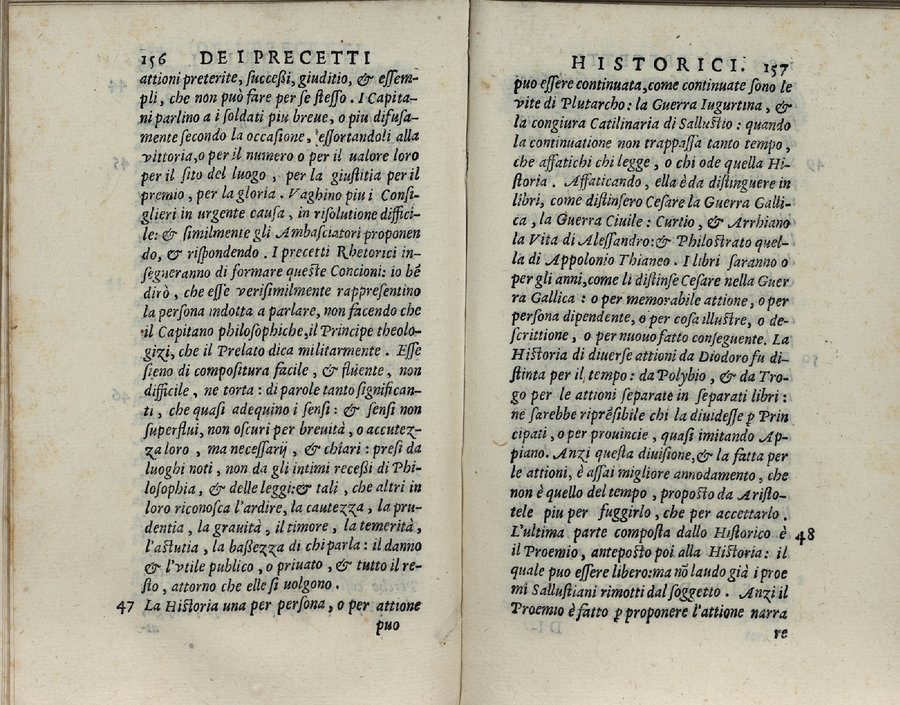 156 DEI PRECETTI
attioni preterite, ſucceßi, giuditio, & eſſem-
pli, che non può fare per ſe ſteſſo. I Capita-
ni parlino a i ſoldati piu breue, o piu difuſa-
mente ſecondo la occaſione, eſſortandoli alla
vittoria,o per il numero o per il ualore loro
per il ſito del luogo, per la giuſtitia per il
premio, per la gloria. Vaghino piu i Conſi-
glieri in urgente cauſa, in riſolutione diffici-
le: & ſimilmente gli Ambaſciatori proponen
do, & riſpondendo. I precetti Rhetorici in-
ſegneranno di formare queſte Concioni: io bẽ
dirò, che eſſe veriſimilmente rappreſentino
la perſona indotta a parlare, non facendo che
il Capitano philoſophiche,il Principe theolo-
gizi, che il Prelato dica militarmente. Eſſe
ſieno di compoſitura facile, & fluente, non
difficile, ne torta: di parole tanto ſignifican-
ti, che quaſi adequino i ſenſi: & ſenſi non
ſuperflui, non oſcuri per breuità, o accutez-
za loro, ma neceſſarij, & chiari: preſi da
luoghi noti, non da gli intimi receßi di Phi-
loſophia, & delle leggi:& tali, che altri in
loro riconoſca l'ardire, la cautezza, la pru-
dentia, la grauità, il timore, la temerità,
l'aſtutia, la baßezza di chi parla: il danno
& l'vtile publico, o priuato, & tutto il re-
ſto, attorno che elle ſi uolgono.
47 La Hiſtoria una per perſona, o per attione
puo
HISTORICI. 157
puo eſſere continuata,come continuate ſono le
vite di Plutarcho: la Guerra Iugurtina, &
la congiura Catilinaria di Salluſtio: quando
la continuatione non trappaſſa tanto tempo,
che affatichi chi legge, o chi ode quella Hi-
ſtoria. Affaticando, ella è da diſtinguere in
libri, come diſtinſero Ceſare la Guerra Galli-
ca, la Guerra Ciuile: Curtio, & Arrhiano
la Vita di Aleſſandro:& Philoſtrato quel-
la di Appolonio Thianeo. I libri ſaranno o
per gli anni,come li diſtinſe Ceſare nella Guer
ra Gallica: o per memorabile attione, o per
perſona dipendente, o per coſa illuſtre, o de-
ſcrittione, o per nuouo fatto conſeguente. La
Hiſtoria di diuerſe attioni da Diodoro fu di-
ſtinta per il tempo: da Polybio, & da Tro-
go per le attioni ſeparate in ſeparati libri:
ne ſarebbe riprẽſibile chi la diuideſſe ꝑ Prin
cipati, o per prouincie, quaſi imitando Ap-
piano. Anzi queſta diuiſione,& la fatta per
le attioni, è aſſai migliore annodamento, che
non è quello del tempo, propoſto da Ariſto-
tele piu per fuggirlo, che per accettarlo.
L'ultima parte compoſta dallo Hiſtorico è 48
il Proemio, antepoſto poi alla Hiſtoria: il
quale puo eſſere libero:ma nõ laudo già i proe
mi Salluſtiani rimotti dal ſoggetto. Anzi il
Proemio è fatto ꝑ proponere l'attione narra
re